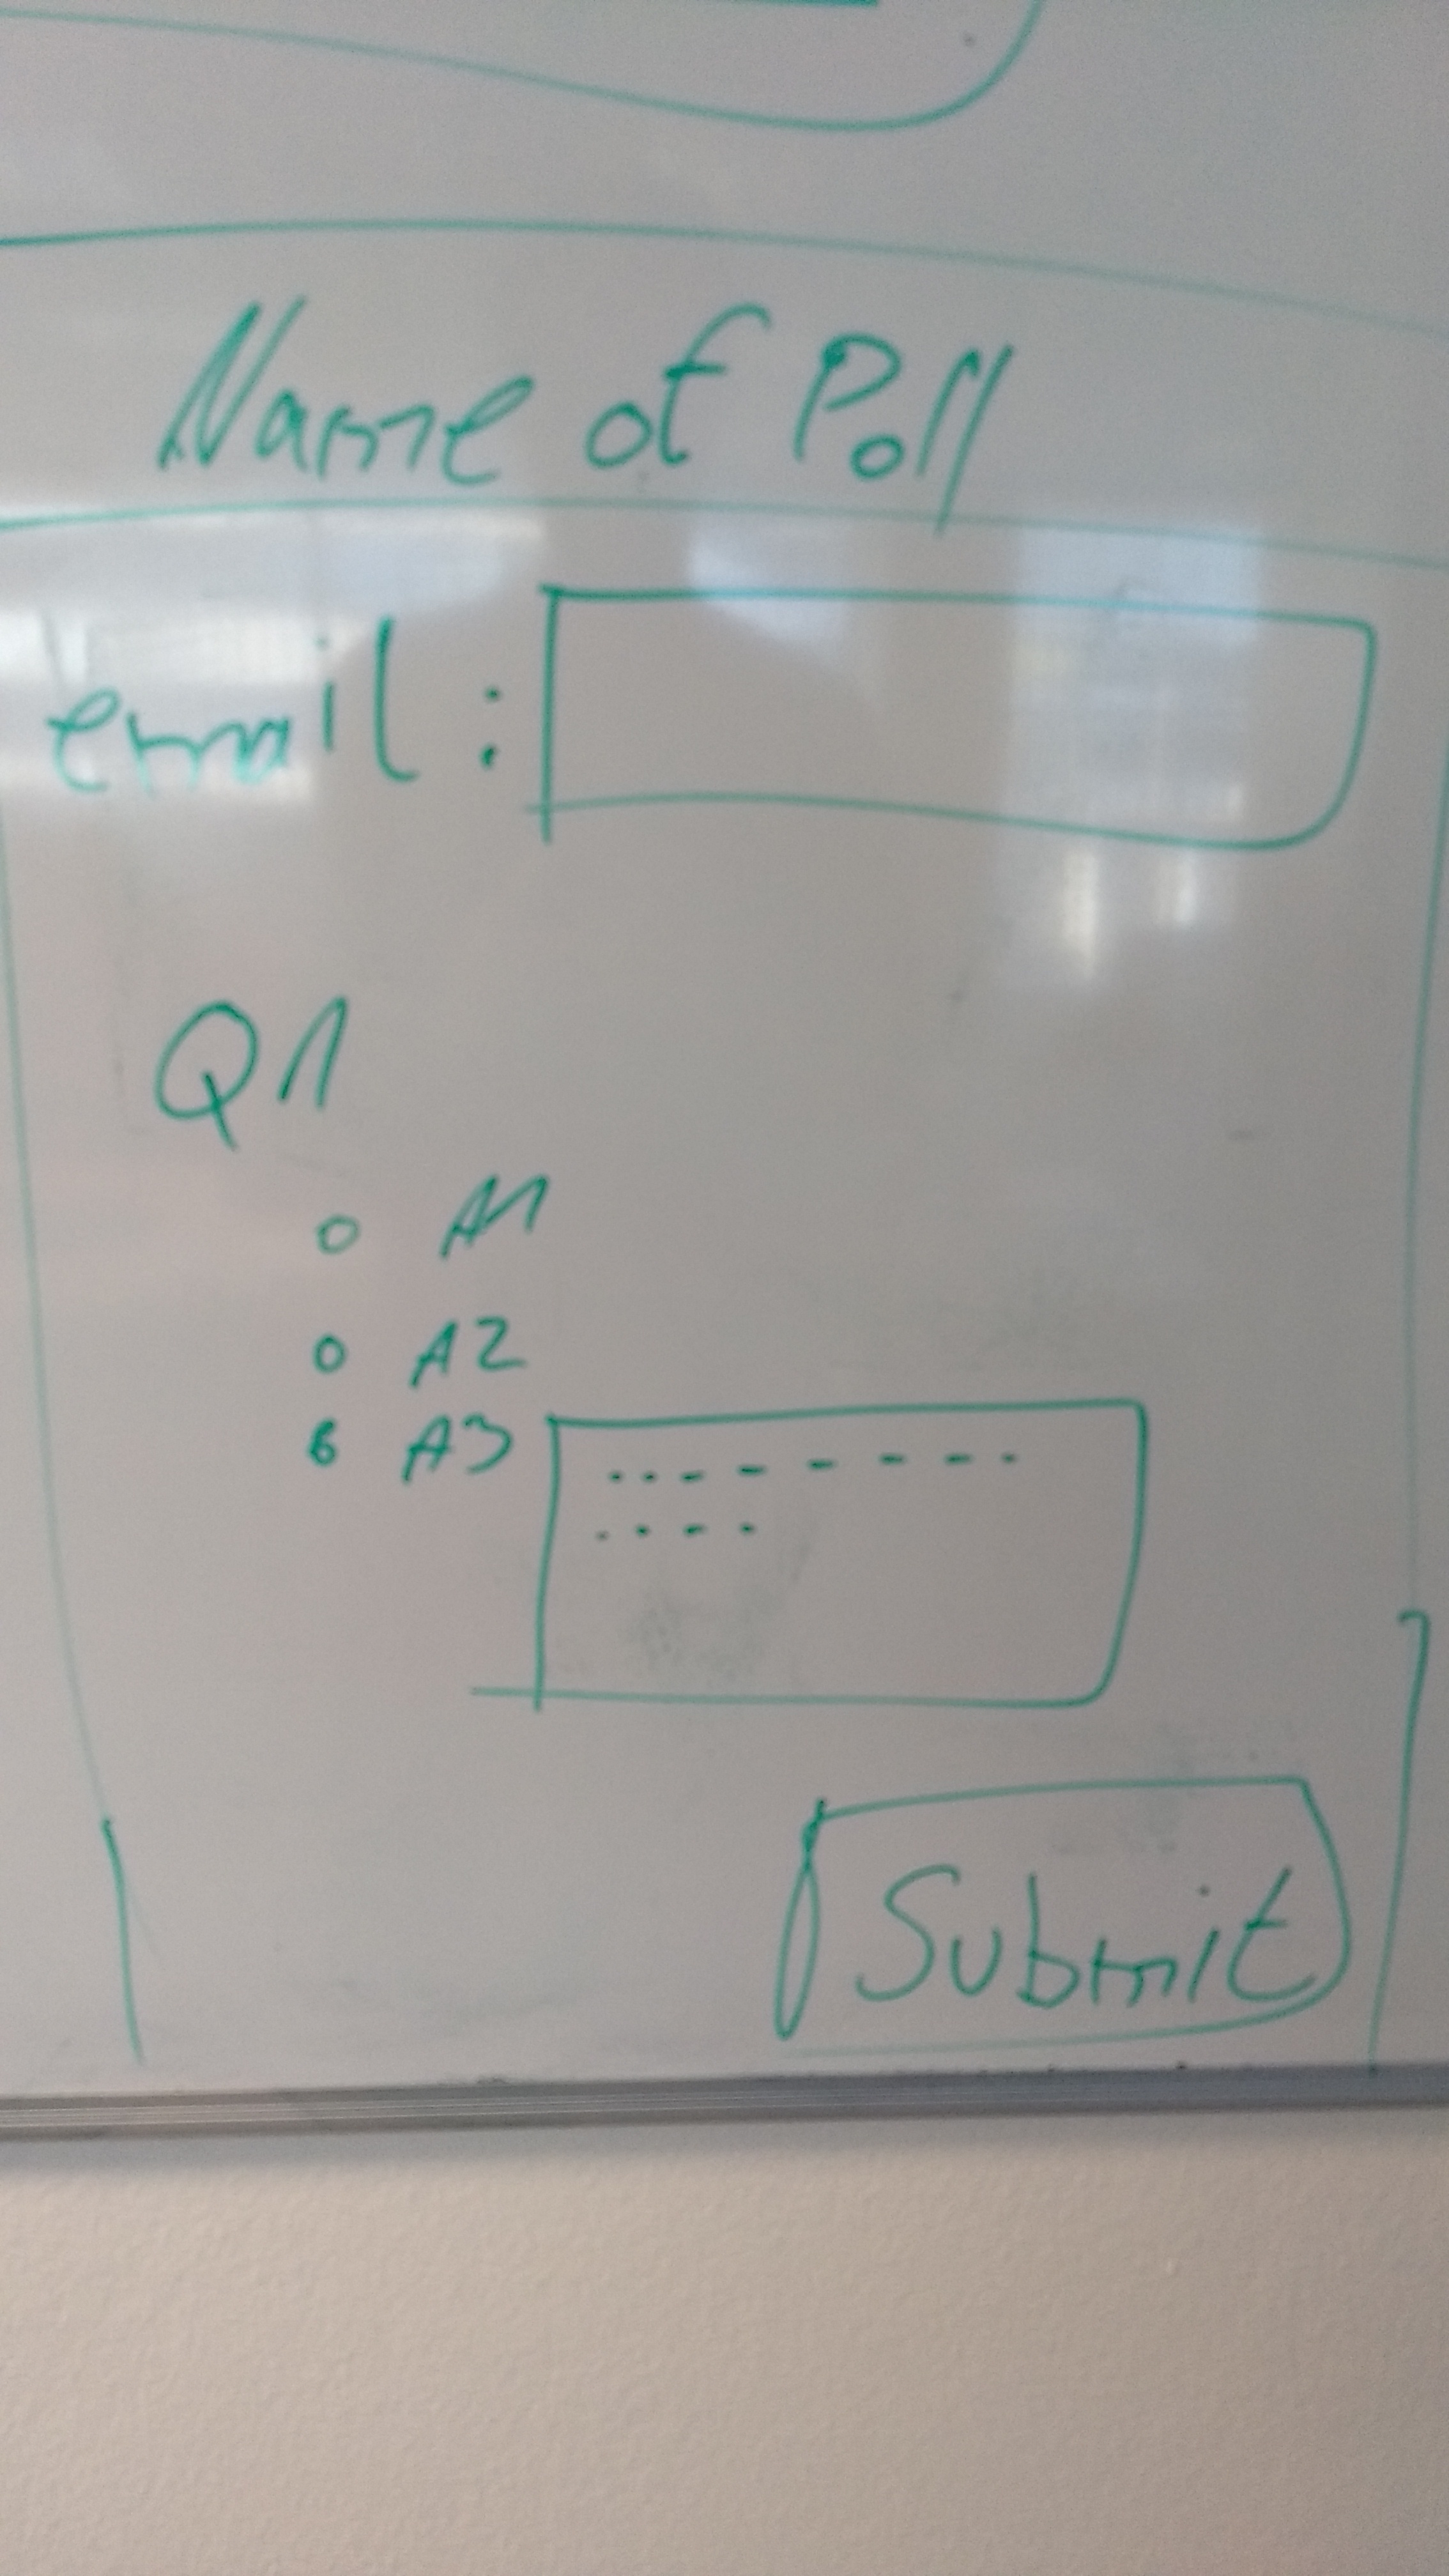 Name of Poll
email :
Q1
A1
A2
A3
Submit